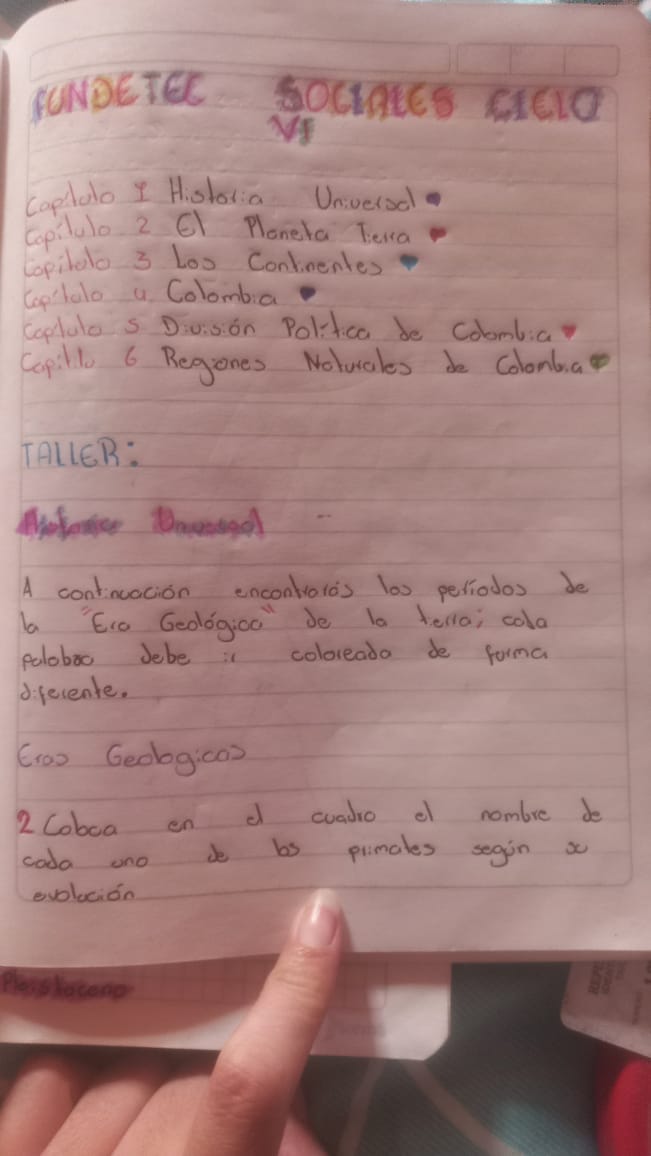 FUNDETEC SOCIALES CICLO
VI
Capitulo 1 Historia Universal
Capitulo 2 El Planeta Tierra
Capitulo 3 Los Continentes
Capitulo 4 Colombia
Capitulo 5 División Política de Colombia
Capitulo 6 Regiones Naturales de Colombia
TALLER:
Historia Universal
A continuación encontrarás los períodos de
la "Era Geológica" de la tierra; cada
palabra debe ir coloreada de forma
diferente.
Eras Geologicas
2 Coloca en el cuadro el nombre de
cada uno de los primates según su
evolución
Pleistoceno